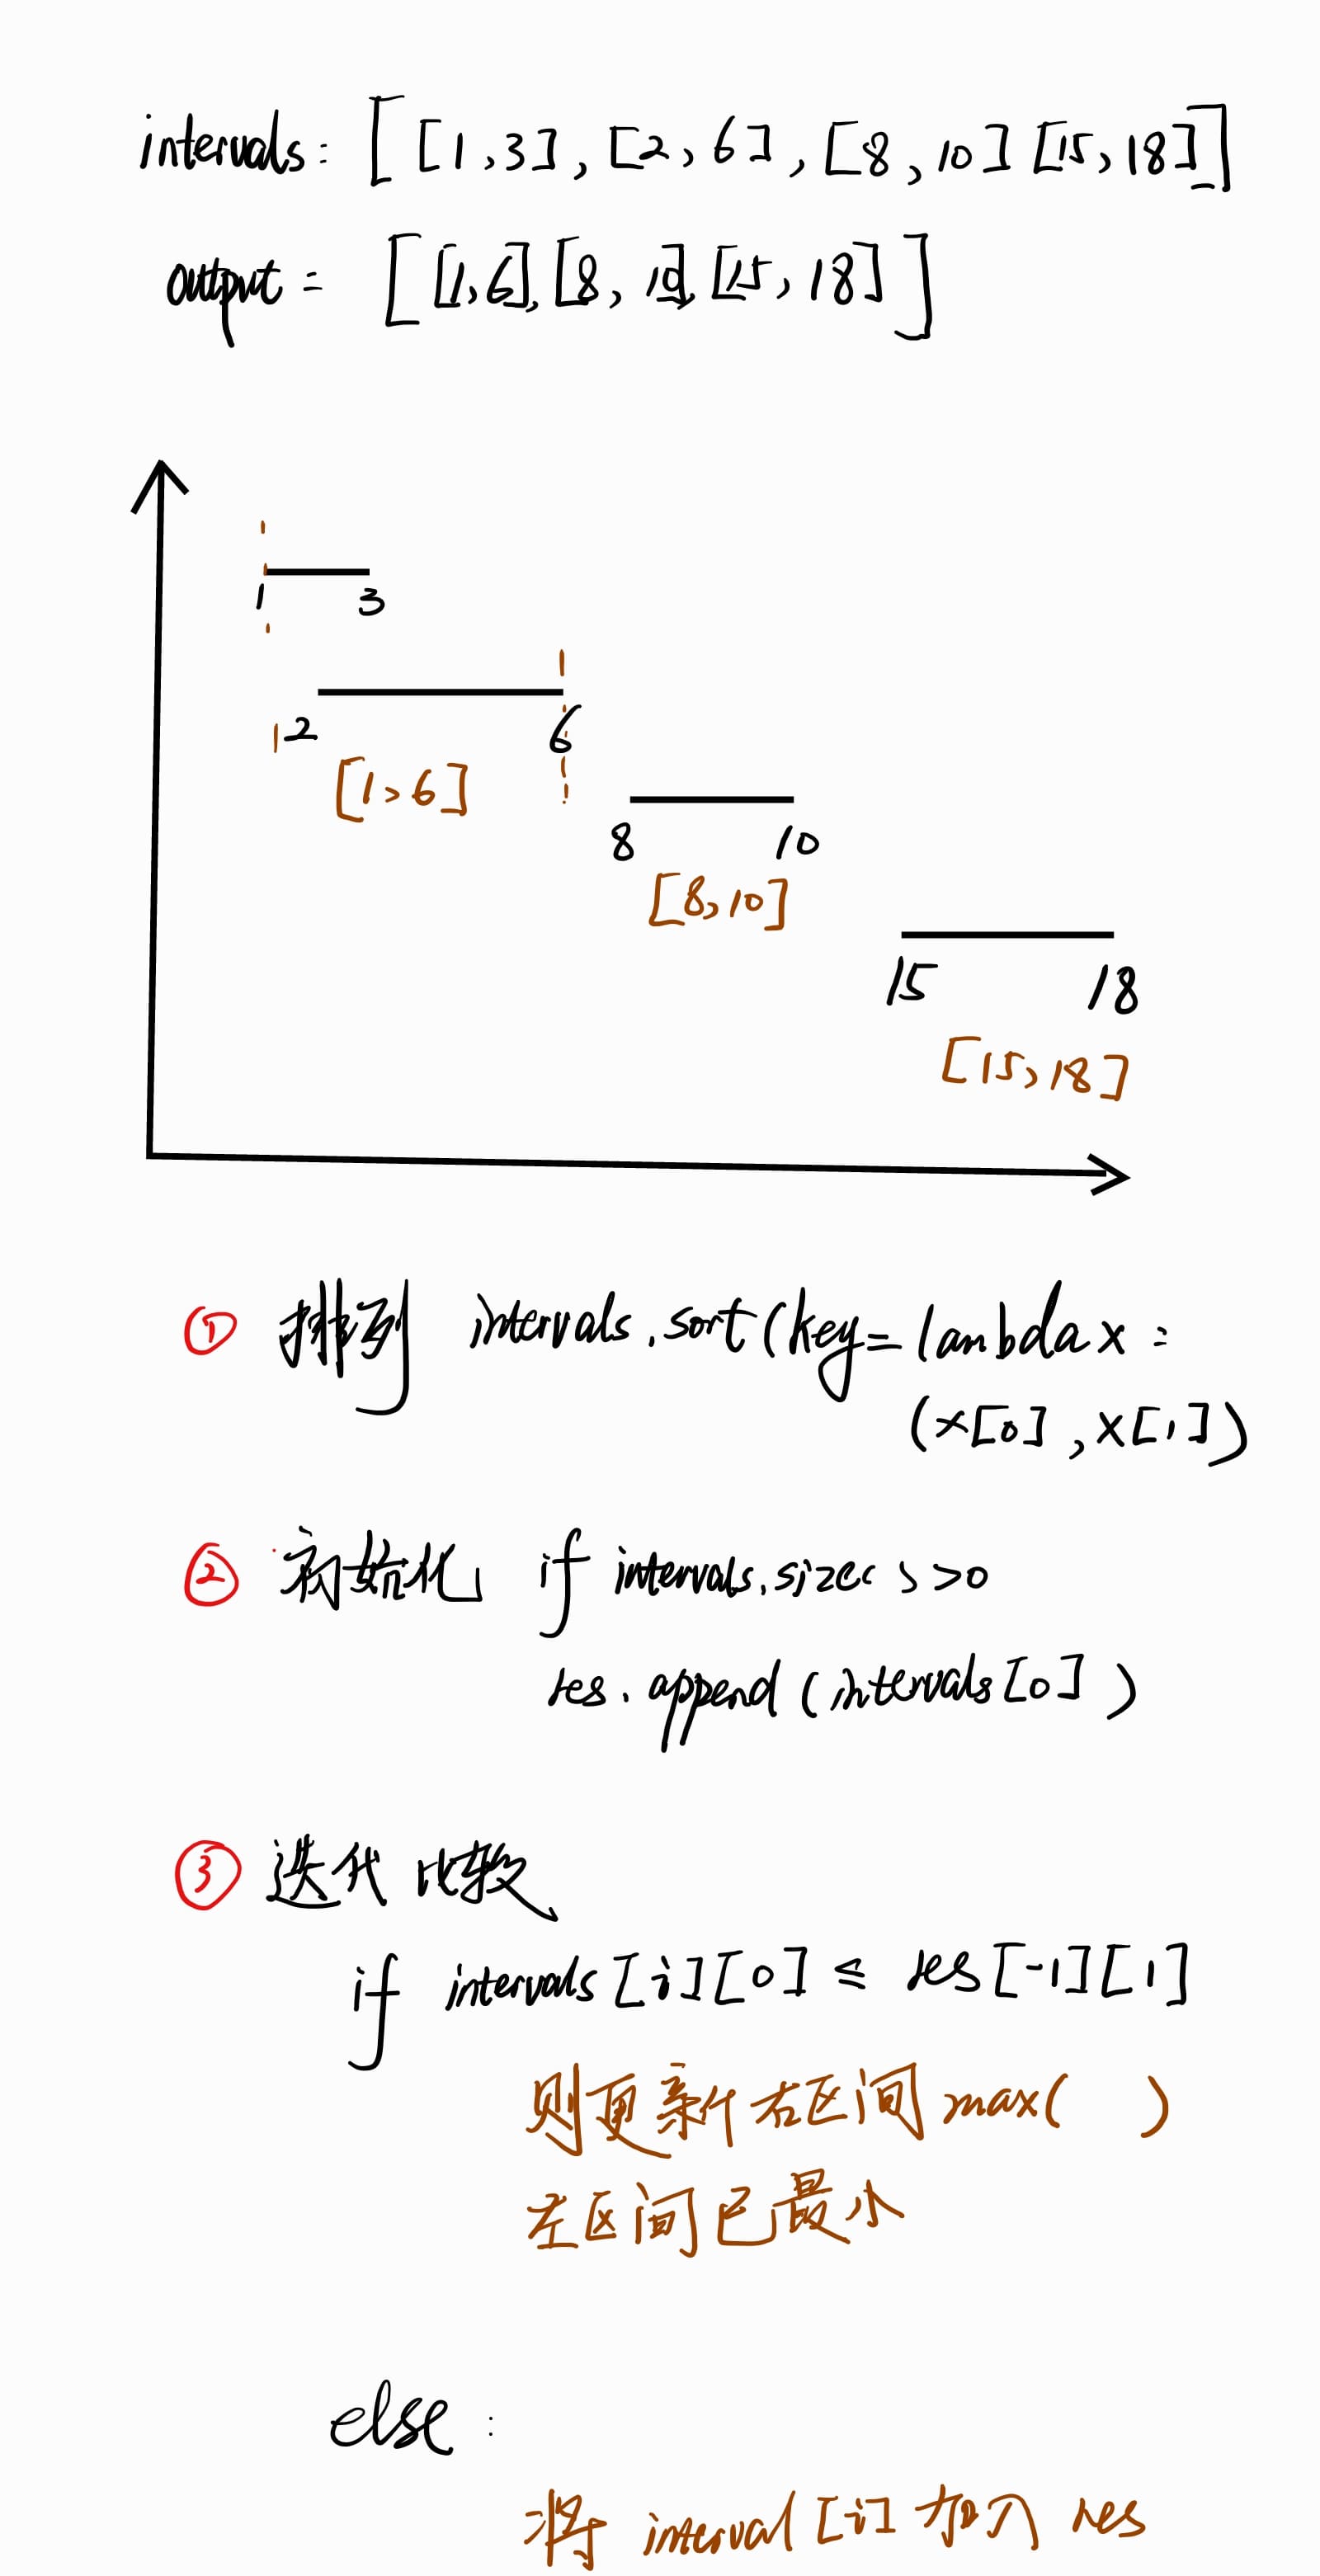 intervals: [ [1,3], [2,6], [8,10] [15,18]]
output = [ [1,6], [8,10], [15,18] ]
1 3
2 6
[1,6]
8 10
[8,10]
15 18
[15,18]
① 排列 intervals.sort(key=lambda x :
(x[0],x[1])
② 初始化 if intervals.size()>0
res.append(intervals[0])
③ 迭代比较
if intervals[i][0] ≤ res[-1][1]
则更新右区间 max( )
左区间已最小
else :
将 interval[i] 加入 res